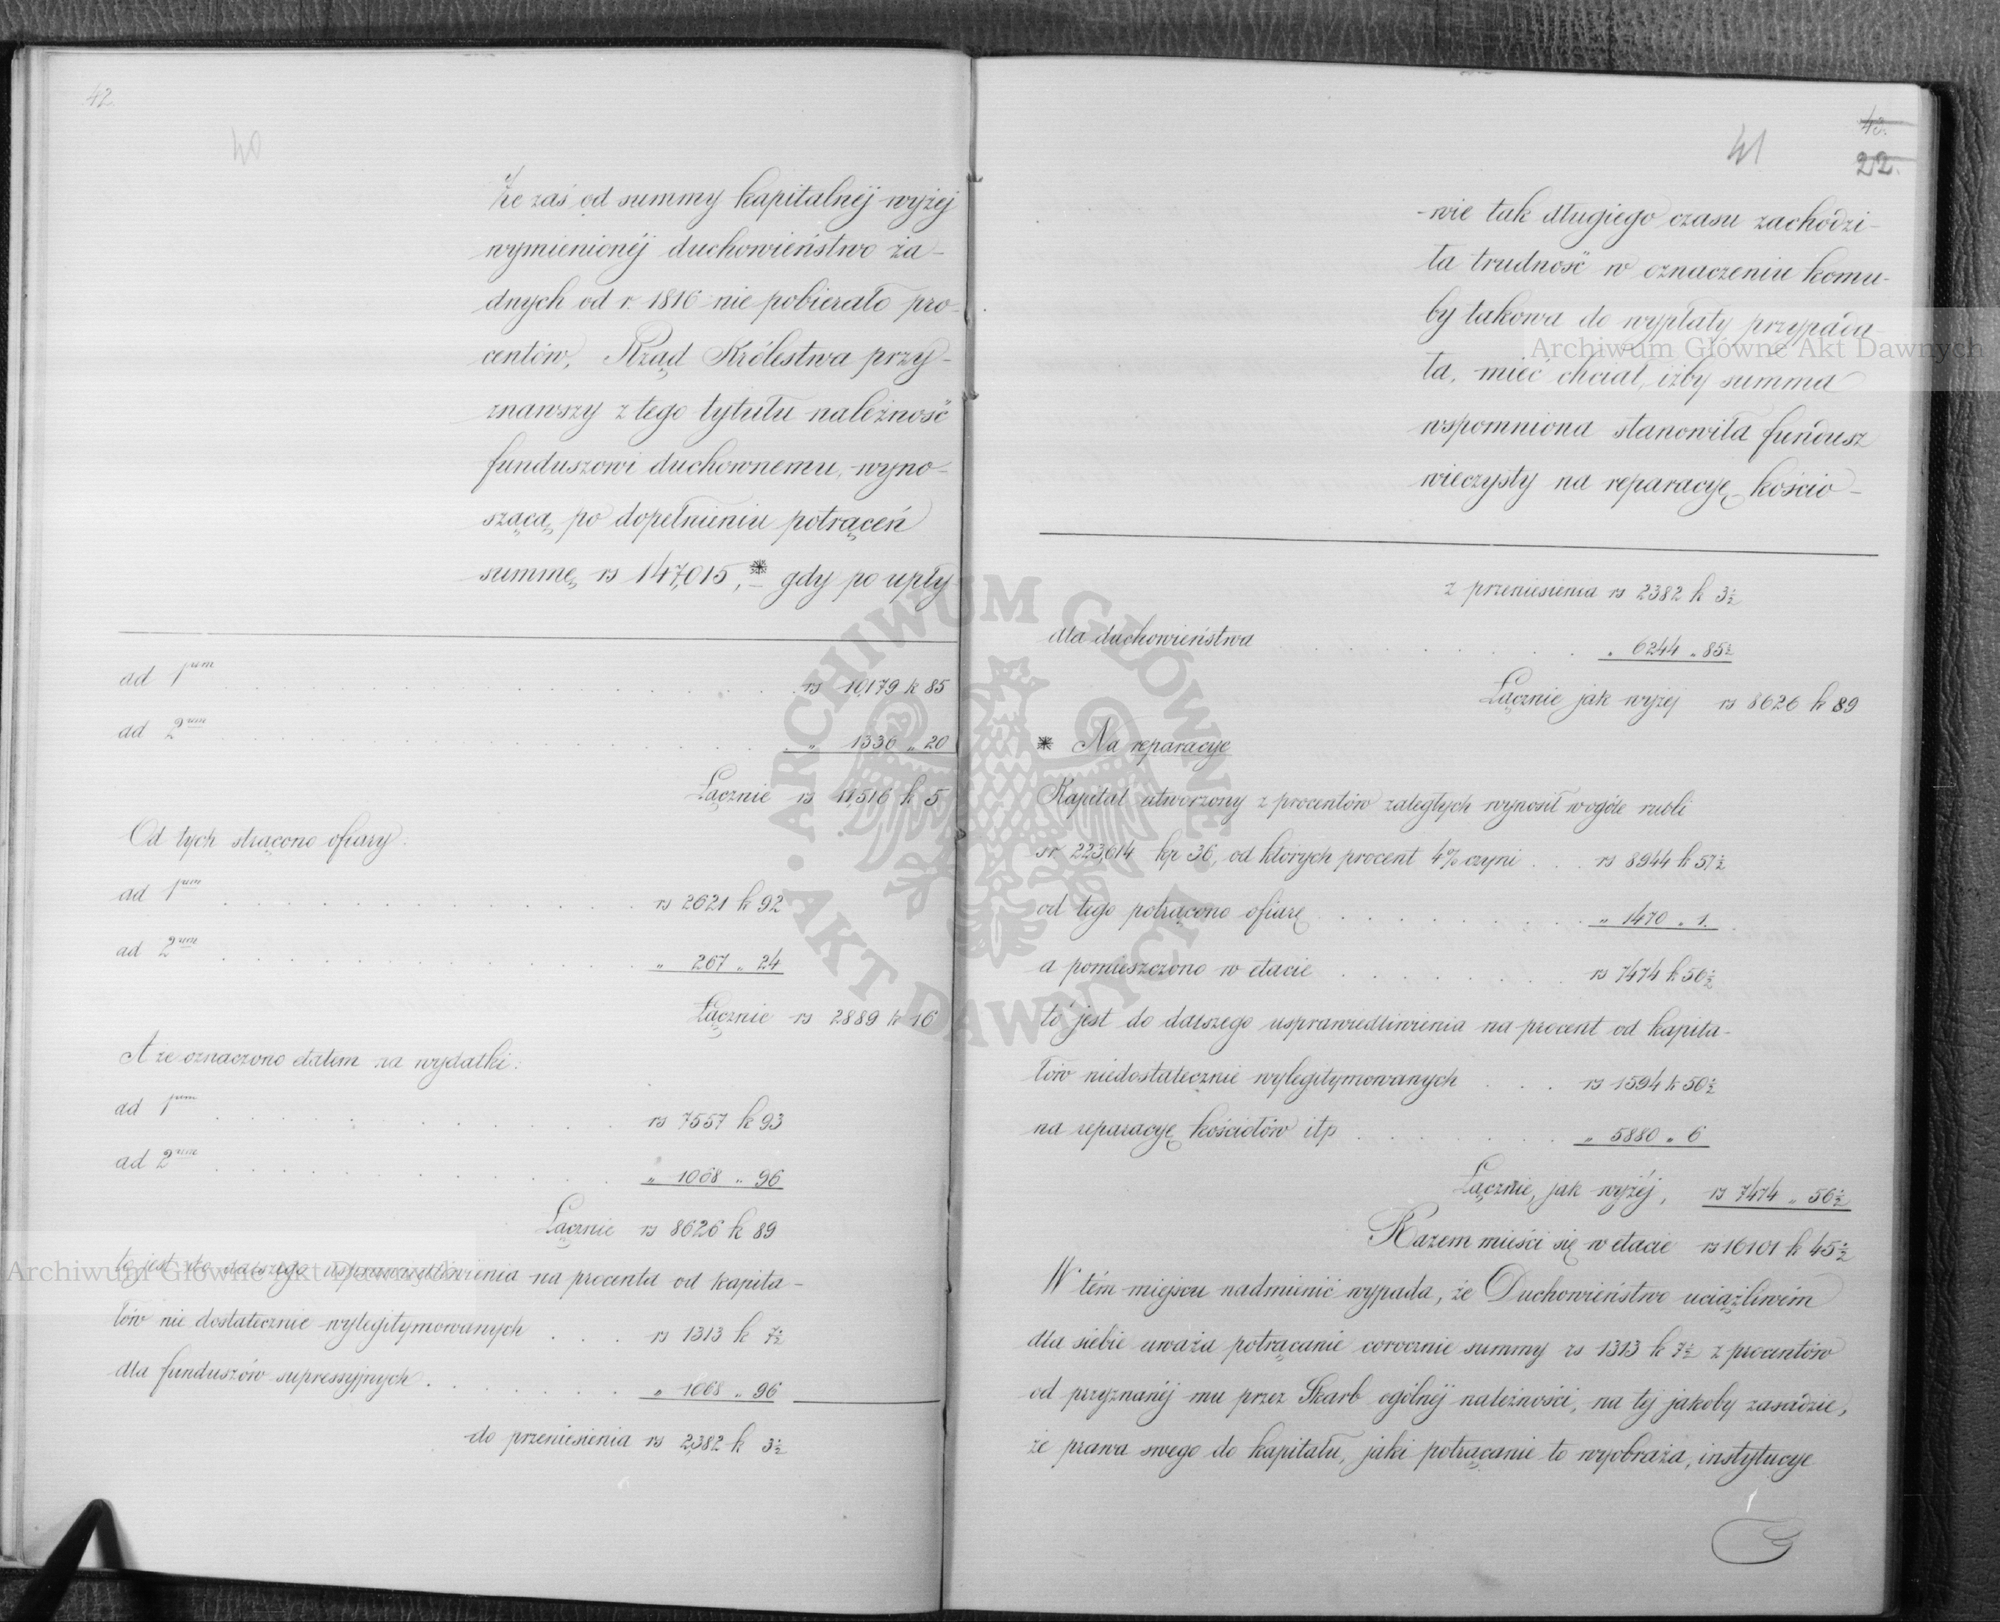 42
40
Że zaś od summy kapitalnéj wyżej
wymienionéj duchowieństwo ża-
dnych od r. 1816 nie pobierało pro-
centów, Rząd Królestwa przy-
znawszy z tego tytułu należność
funduszowi duchownemu, wyno-
szącą po dopełnieniu potrąceń
summę rs 147,015,* gdy po upły
ad 1um . . . rs 10,179 k 85
ad 2um . . . „ 1336 „ 20
Łącznie rs 11,516 k 5
Od tych strącono ofiary:
ad 1um . . . rs 2621 k 92
ad 2um . . . „ 267 „ 24
Łącznie rs 2889 k 16
A że oznaczono etatem na wydatki:
ad 1um . . . rs 7557 k 93
ad 2um . . . „ 1068 „ 96
Łącznie rs 8626 k 89
to jest do dalszego usprawiedliwienia na procenta od kapita-
łów nie dostatecznie wylegitymowanych . . . rs 1313 k 7½
dla funduszów supressyjnych . . . „ 1068 „ 96
do przeniesienia rs 2,382 k 3½
43.
41
22.
-wie tak długiego czasu zachodzi-
ła trudność w oznaczeniu komu-
by takowa do wypłaty przypada-
ła, mieć chciał, iżby summa
wspomniona stanowiła fundusz
wieczysty na reparacyę kościo-
z przeniesienia rs 2382 k 3½
dla duchowieństwa . . . „ 6244 „ 85½
Łącznie jak wyżej rs 8626 k 89
* Na reparacye
Kapitał utworzony z procentów zaległych wynosił wogóle rubli
sr 223,614 kp 36, od których procent 4% czyni . . . rs 8944 k 57½
od tego potrącono ofiarę . . . „ 1470 „ 1.
a pomieszczono w etacie . . . rs 7474 k 56½
to jest do dalszego usprawiedliwienia na procent od kapita-
łów niedostatecznie wylegitymowanych . . . rs 1594 k 50½
na reparacyę kościołów itp . . . „ 5880 „ 6
Łącznie, jak wyżéj, rs 7474 „ 56½
Razem mieści się w etacie rs 16101 k 45½
W tém miejscu nadmienić wypada, że Duchowieństwo uciążliwém
dla siebie uważa potrącanie corocznie summy rs 1313 k 7½ z procentów
od przyznanéj mu przez Skarb ogólnéj należności, na tej jakoby zasadzie,
że prawa swego do kapitału, jaki potrącanie to wyobraża, instytucye
Archiwum Główne Akt Dawnych
Archiwum Główne Akt Dawnych
ARCHIWUM GŁÓWNE • AKT DAWNYCH •